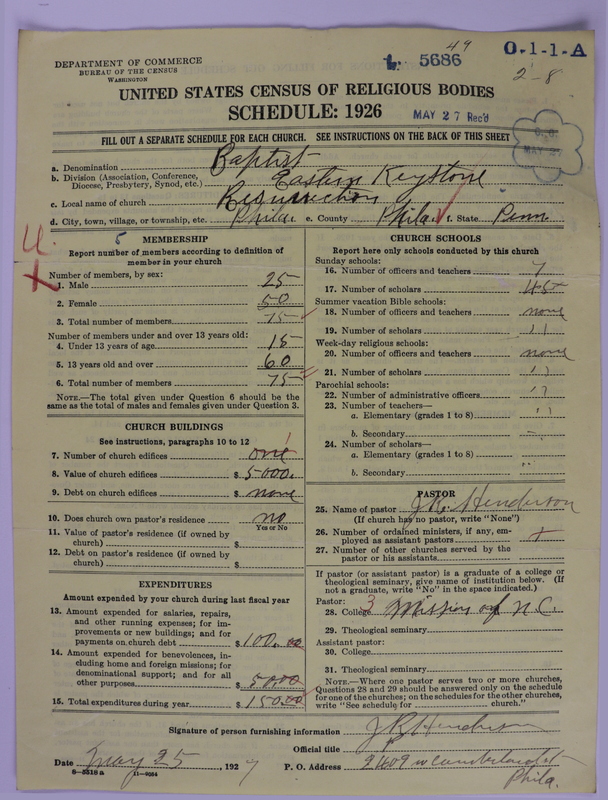 49
L. 5686
O-1-1-A
2-8
DEPARTMENT OF COMMERCE
BUREAU OF THE CENSUS
WASHINGTON
UNITED STATES CENSUS OF RELIGIOUS BODIES
SCHEDULE: 1926
MAY 27 Rec'd
FILL OUT A SEPARATE SCHEDULE FOR EACH CHURCH. SEE INSTRUCTIONS ON THE BACK OF THIS SHEET
MAY 27
a. Denomination Baptist
b. Division (Association, Conference, Diocese, Presbytery, Synod, etc.) Eastern Keystone
c. Local name of church Resurrection
d. City, town, village, or township, etc. Phila. e. County Phila f. State Penn
5
MEMBERSHIP
Report number of members according to definition of
member in your church
Number of members, by sex:
1. Male 25
2. Female 50
3. Total number of members 75
Number of members under and over 13 years old:
4. Under 13 years of age 15
5. 13 years old and over 60
6. Total number of members 75
NOTE.—The total given under Question 6 should be
same as the total of males and females given under Question 3.
CHURCH BUILDINGS
See instructions, paragraphs 10 to 12
7. Number of church edifices one 1
8. Value of church edifices $ 5000.
9. Debt on church edifices $ none
10. Does church own pastor's residence no
Yes or No
11. Value of pastor's residence (if owned by
church) $
12. Debt on pastor's residence (if owned by
church) $
EXPENDITURES
Amount expended by your church during last fiscal year
13. Amount expended for salaries, repairs,
and other running expenses; for im-
provements or new buildings; and for
payments on church debt $ 100.00
14. Amount expended for benevolences, in-
cluding home and foreign missions; for
denominational support; and for all
other purposes $ 50.00
15. Total expenditures during year $ 150.00
CHURCH SCHOOLS
Report here only schools conducted by this church
Sunday schools:
16. Number of officers and teachers 7
17. Number of scholars 45
Summer vacation Bible schools:
18. Number of officers and teachers none
19. Number of scholars 11
Week-day religious schools:
20. Number of officers and teachers none
21. Number of scholars ''
Parochial schools:
22. Number of administrative officers ''
23. Number of teachers—
a. Elementary (grades 1 to 8) ''
b. Secondary
24. Number of scholars—
a. Elementary (grades 1 to 8)
b. Secondary
PASTOR
25. Name of pastor J.R. Henderson
(If church has no pastor, write "None")
26. Number of ordained ministers, if any, em-
ployed as assistant pastors
27. Number of other churches served by the
pastor or his assistants
If pastor (or assistant pastor) is a graduate of a college or
theological seminary, give name of institution below. (If
not a graduate, write "No" in the space indicated.)
Pastor:
28. College 3 Mission of N.C.
29. Theological seminary
Assistant pastor:
30. College
31. Theological seminary
NOTE.—Where one pastor serves two or more churches,
Questions 28 and 29 should be answered only on the schedule
for one of the churches; on the schedules for the other churches,
write "See schedule for church."
Signature of person furnishing information J R Henderson
Official title
Date May 25, 1927 P. O. Address 2409 W Cumberland St
Phila.
8-5518a 11-9084